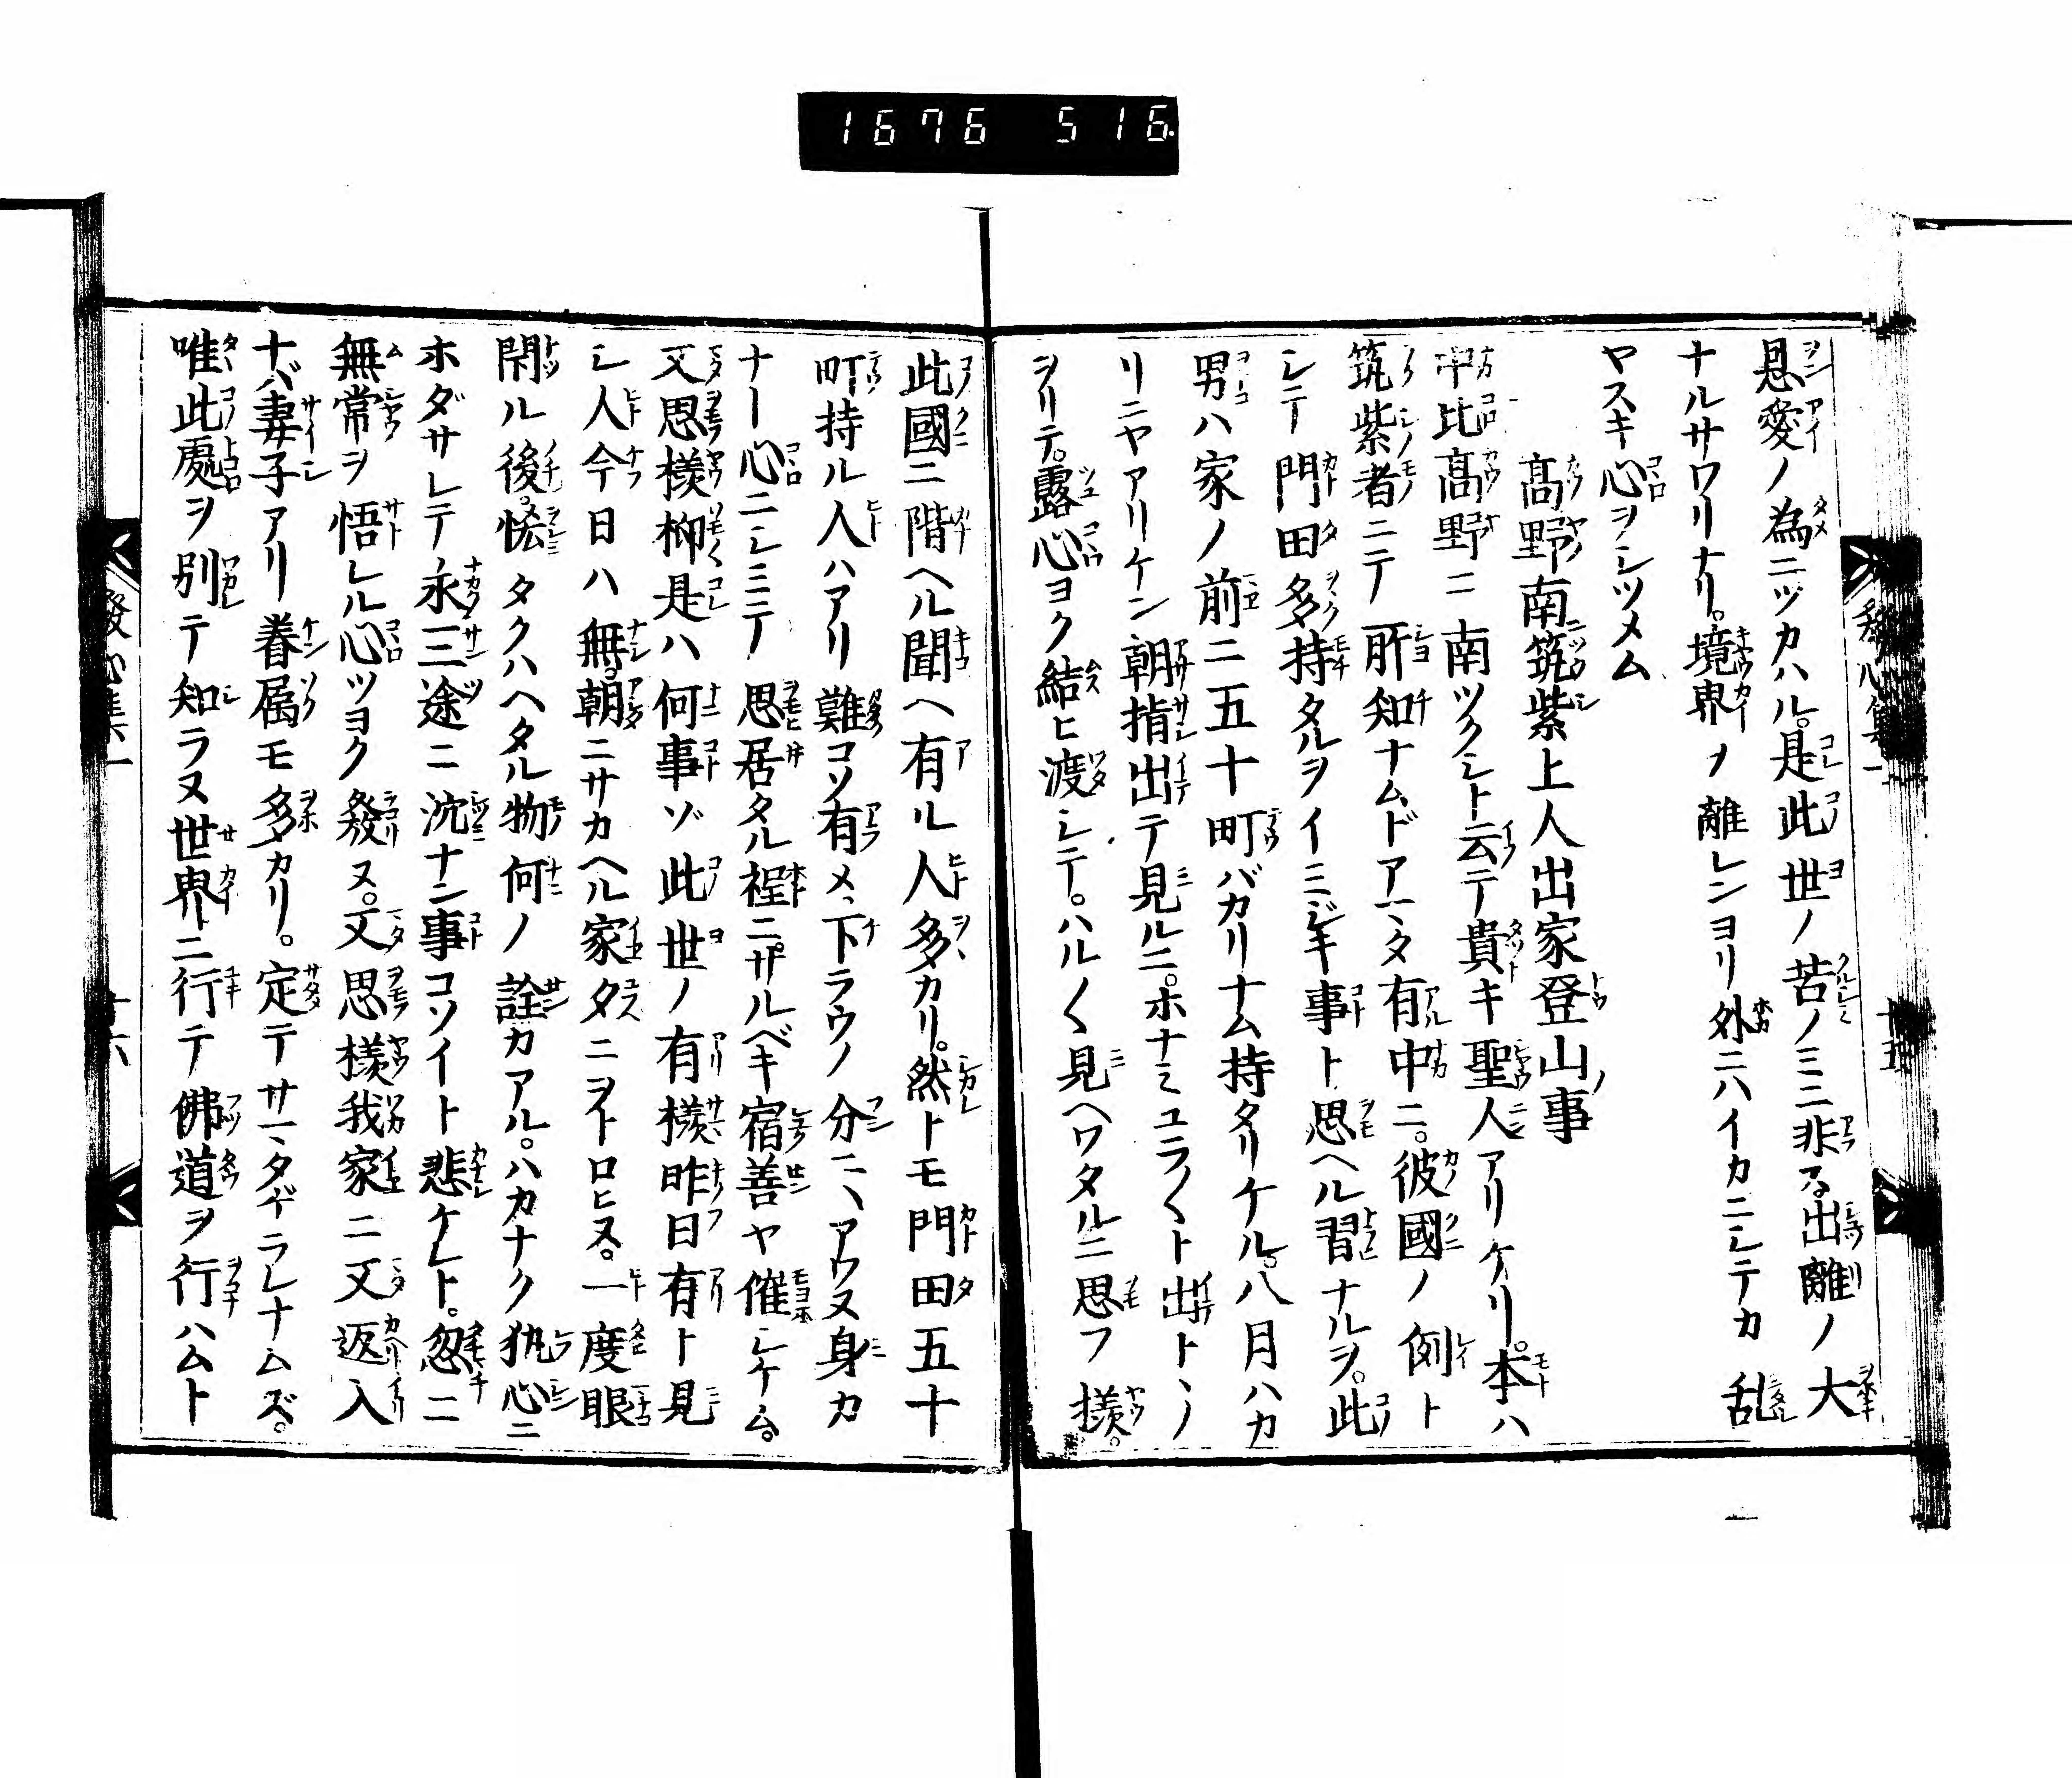 1676 516
恩愛ノ為ニツカハル。是此世ノ苦ノミニ非ス。出離ノ大
ナルサワリナリ。境界ノ離レンヨリ外ニハイカニシテカ乱
ヤスキ心ヲシツメム
高野南筑紫上人出家登山事
中比高野ニ南ツクシト云テ貴キ聖人アリケリ。本ハ
筑紫者ニテ所知ナムドアマタ有中ニ。彼國ノ例ト
シテ門田多持タルヲイミジキ事ト思ヘル習ナルヲ。此
男ハ家ノ前ニ五十町バカリナム持タリケル。八月ハカ
リニヤアリケン朝指出テ見ルニ。ホナミユラ〱ト出トヽノ
ヲリテ。露心ヨク結ヒ渡シテ。ハル〱見ヘワタルニ思フ樣。
此國ニ階ヘル聞ヘ有ル人多カリ。然トモ門田五十
町持ル人ハアリ難コソ有メ。下ラウノ分ニハアワヌ身カ
ナト心ニシミテ思居タル程ニ。サルベキ宿善ヤ催シケム。
又思樣抑是ハ何事ソ此世ノ有樣昨日有ト見
シ人今日ハ無。朝ニサカヘル家夕ニヲトロヒヌ。一度眼
閉ル後。惜タクハヘタル物何ノ詮カアル。ハカナク執心ニ
ホダサレテ永三途ニ沈ナン事コソイト悲ケレト。忽ニ
無常ヲ悟レル心ツヨク發ヌ。又思樣我家ニ又返入
ナバ妻子アリ眷属モ多カリ。定テサマタゲラレナムズ。
唯此處ヲ別テ知ラヌ世界ニ行テ佛道ヲ行ハムト
發心集一
十五
十六